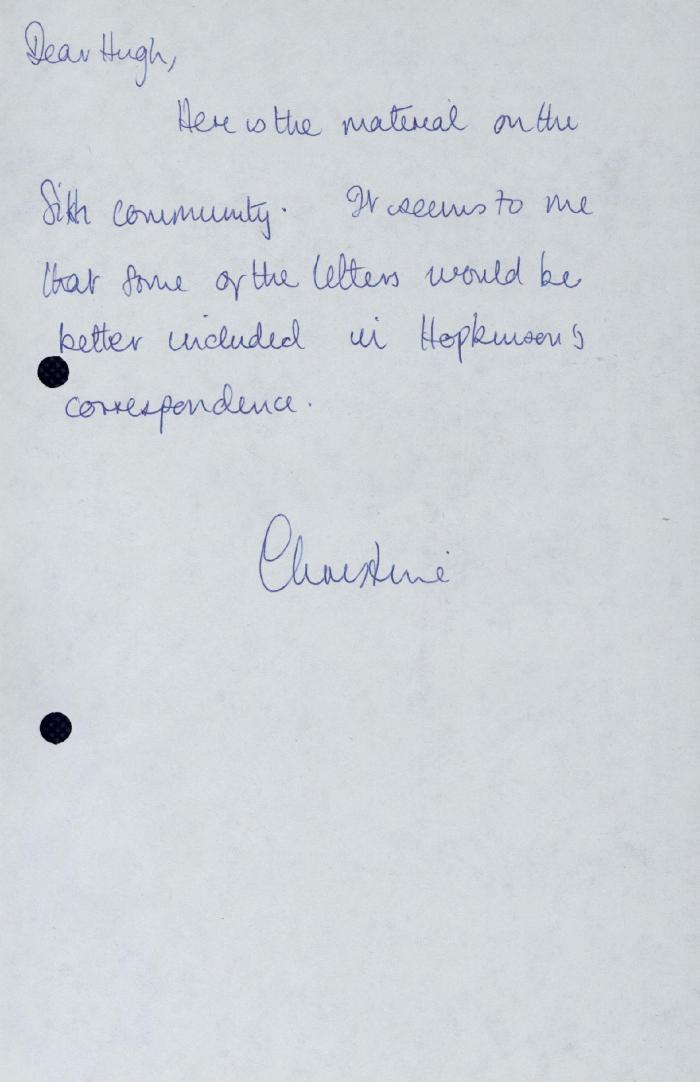 Dear Hugh,
Here is the material on the
Sikh community. It seems to me
that some of the letters would be
better included in Hopkinson's
correspondence.
Christine